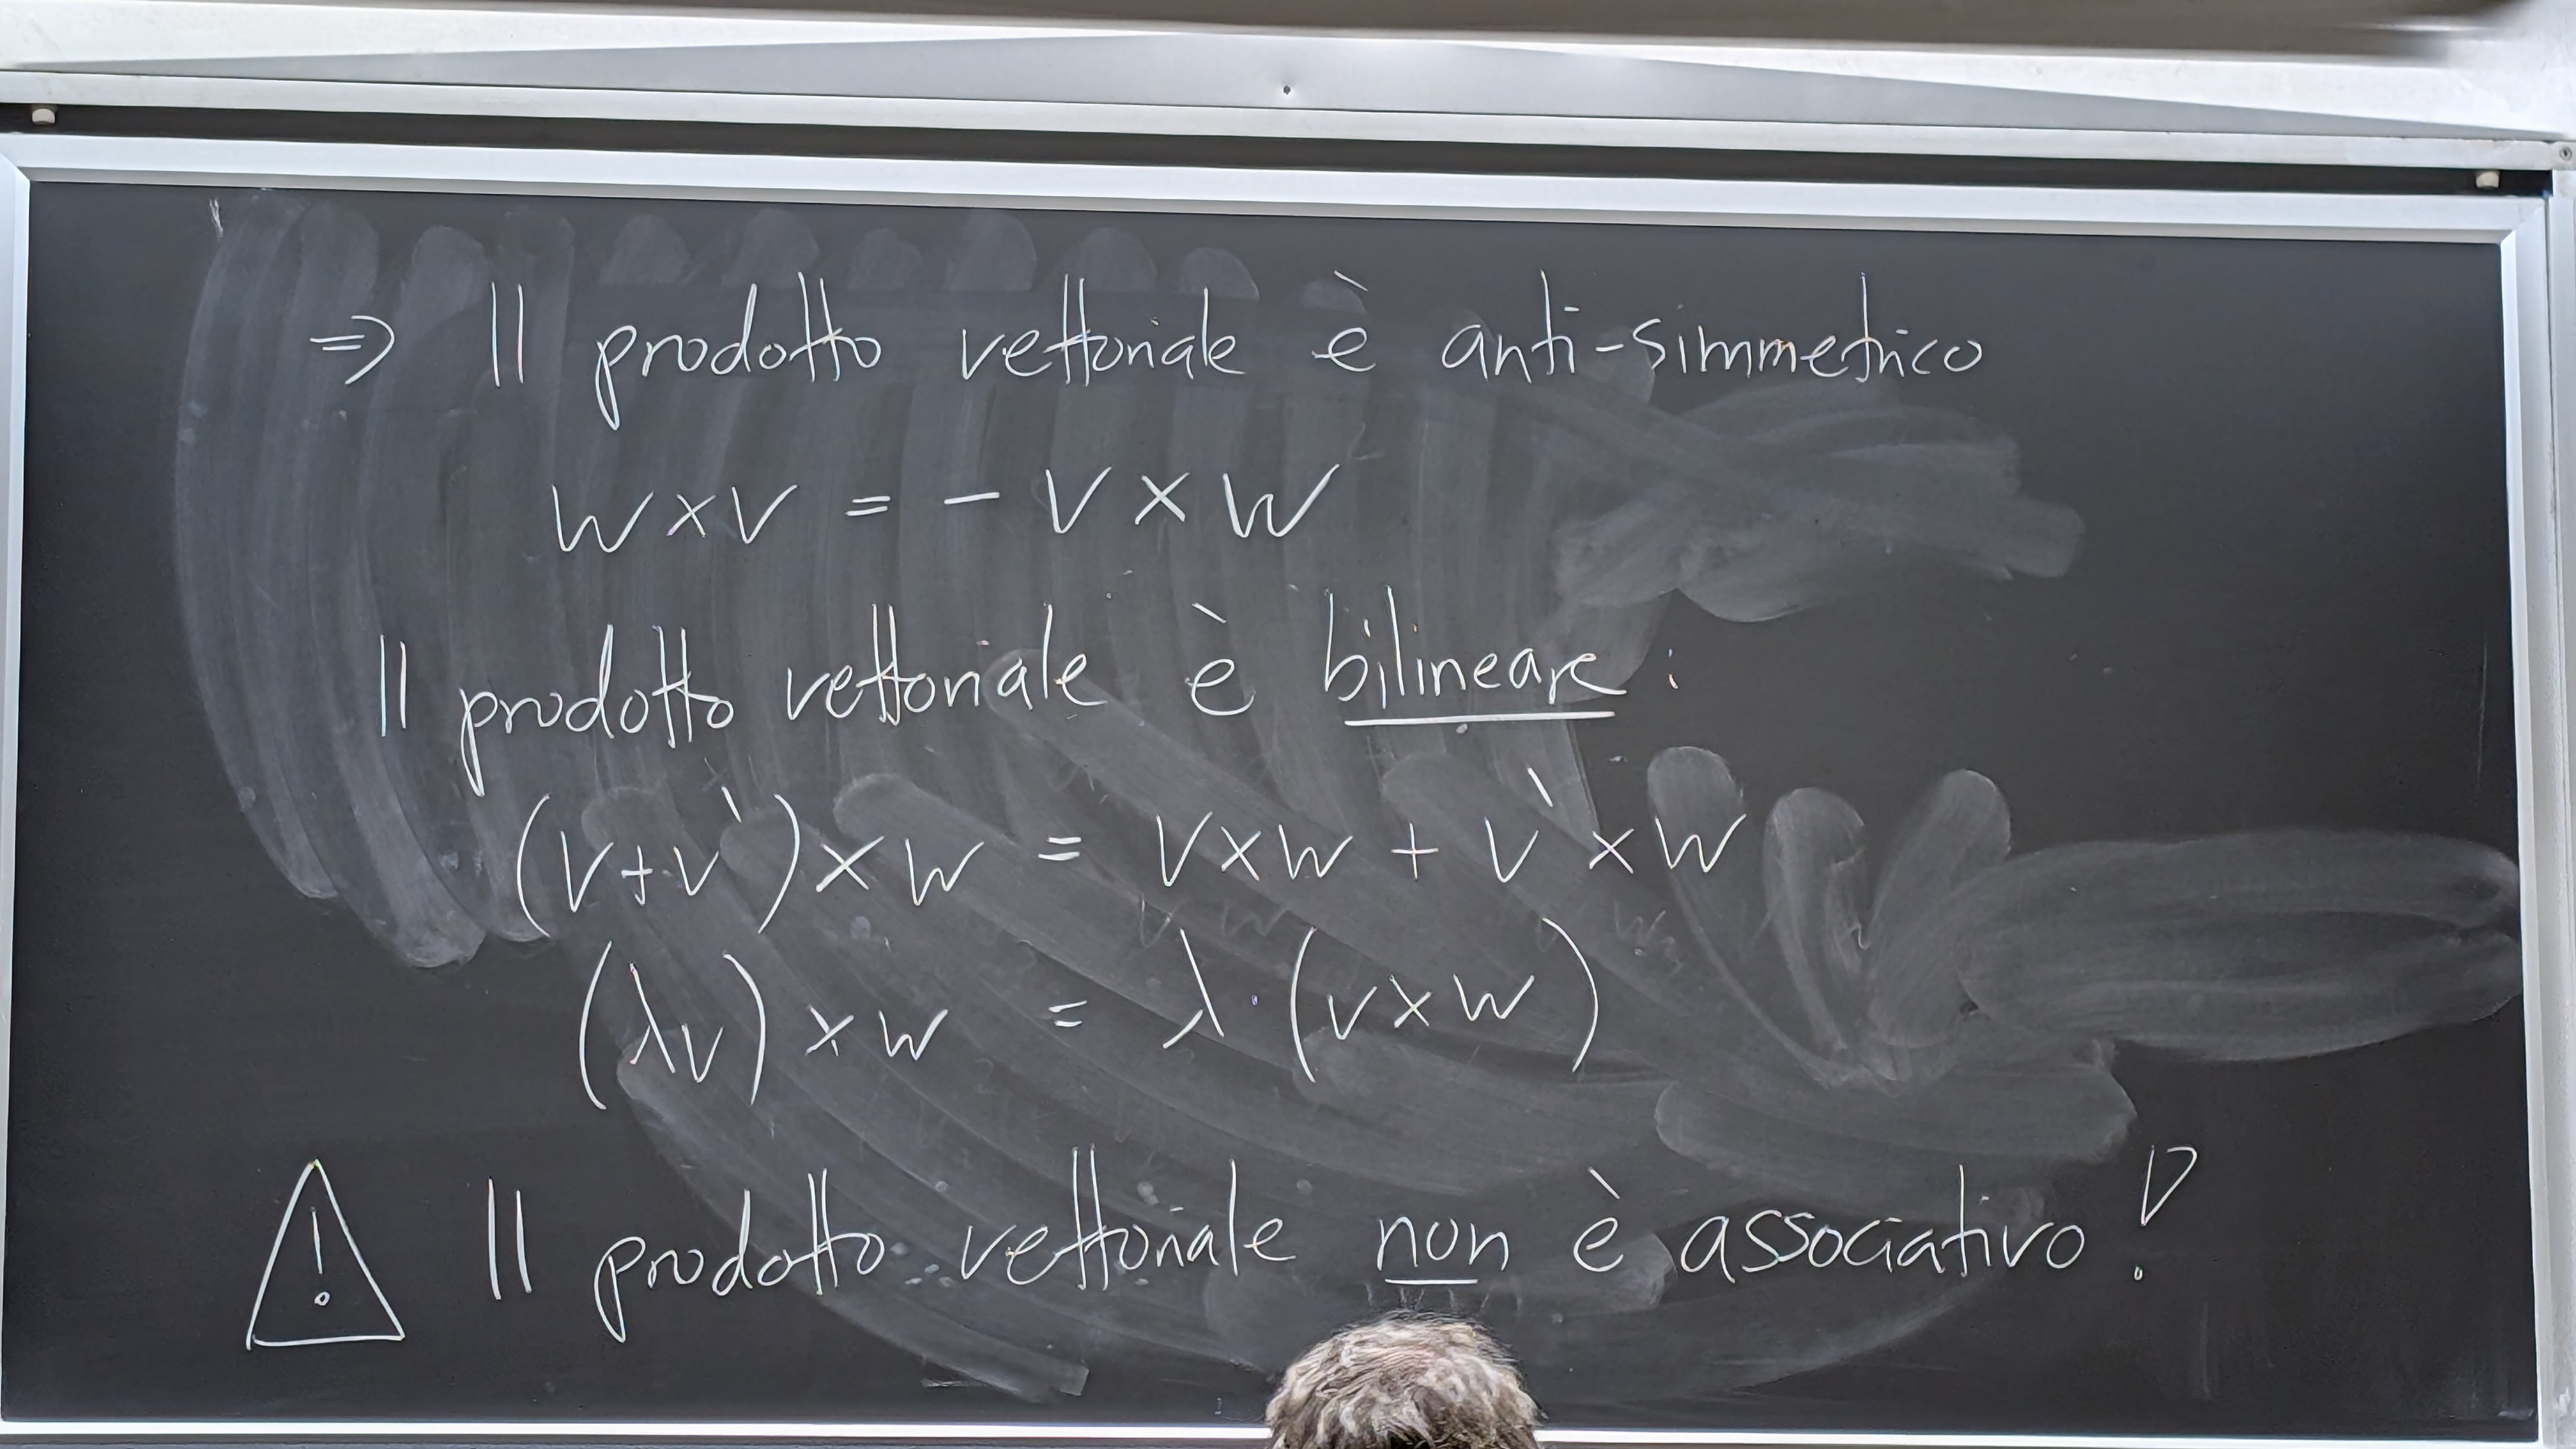 ⇒ Il prodotto vettoriale è anti-simmetrico
w × v = - v × w
Il prodotto vettoriale è bilineare:
(v+v`) × w = v×w + v` × w
(λv) × w = λ·(v×w)
⚠ Il prodotto vettoriale non è associativo!